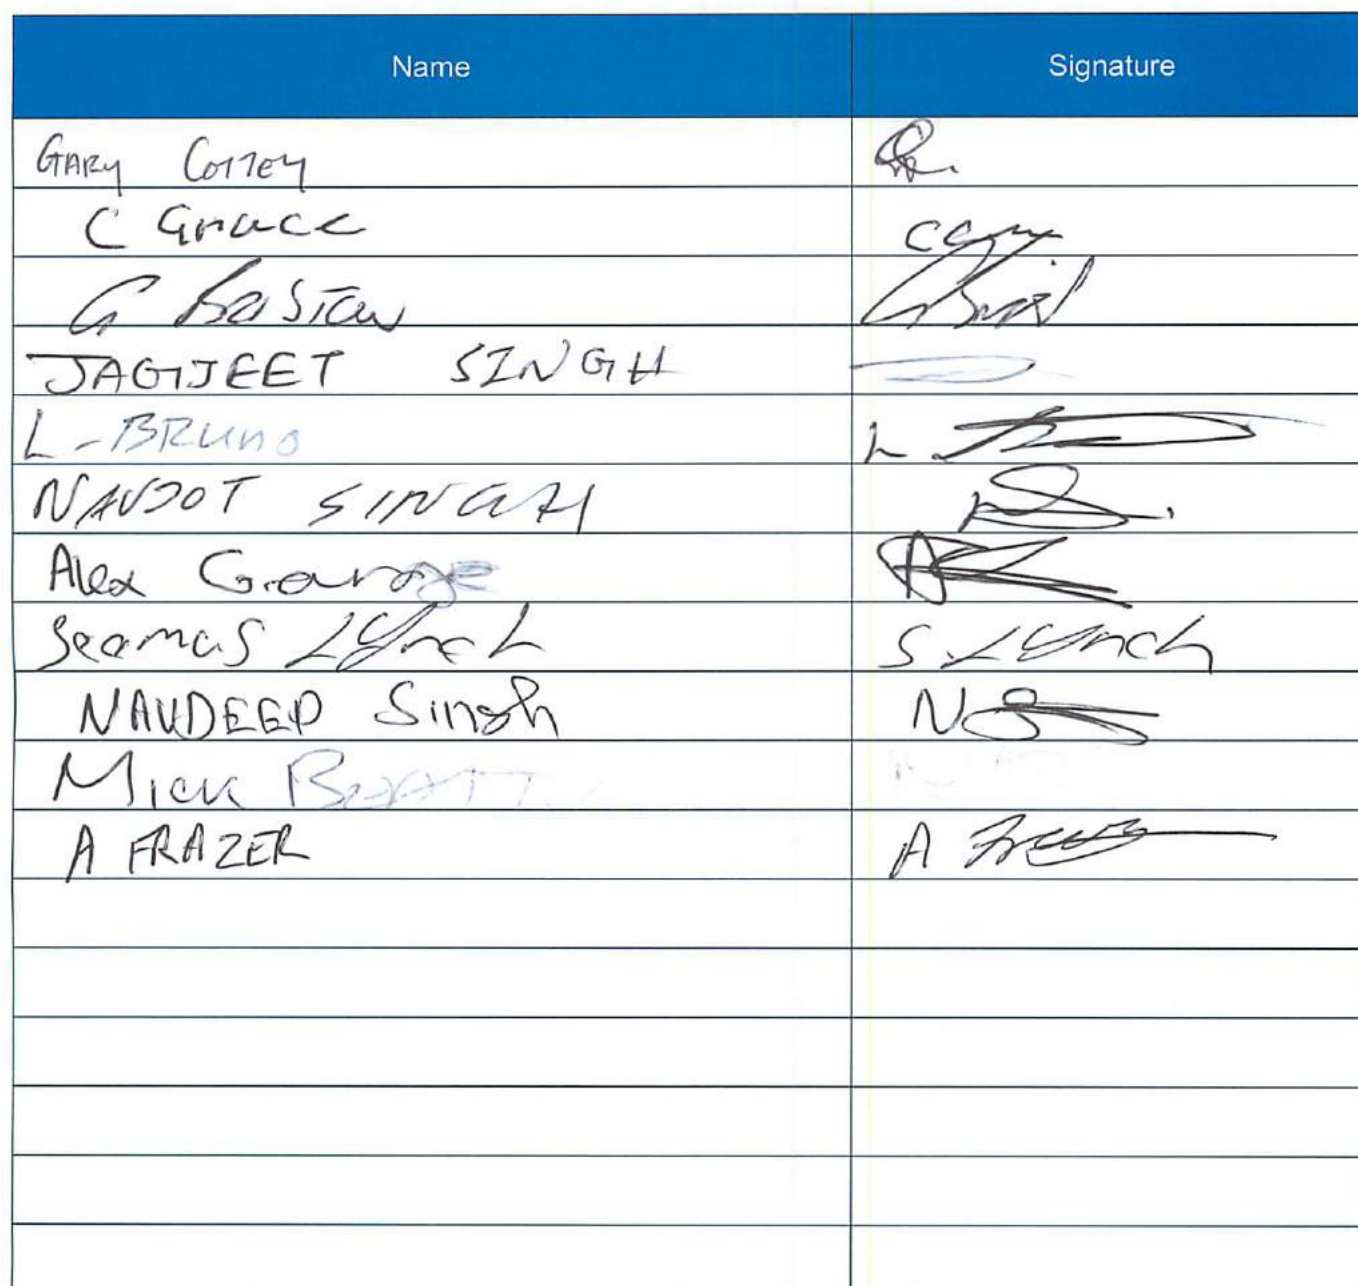 Name Signature
GARY COTTEY
C Grace C
G BRISTOW G
JAGJEET SINGH
L-BRUNO L
NAVJOT SINGH
Alex George
Seamus Lynch S. Lynch
NAVDEEP Singh N
Mick
A FRAZER A